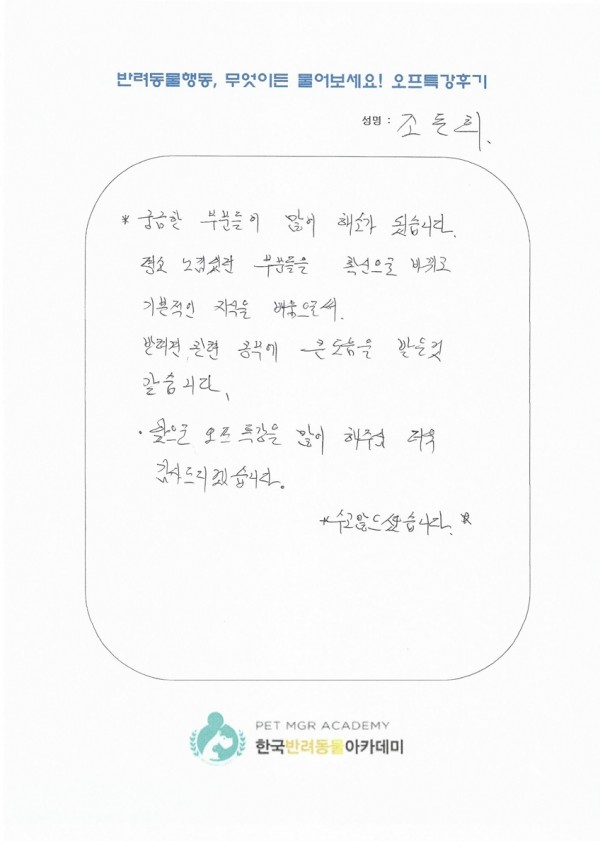 반려동물행동, 무엇이든 물어보세요! 오프특강후기
성명 : 조돈희.
* 궁금한 부분들이 많이 해소가 됬습니다.
평소 부분들을 확신으로 바뀌고
기본적인 지식을 배움으로써.
반려견 관련 공부에 큰도움을 받은것
같습니다.
· 앞으로 오프특강을 많이 해주셔 더욱
감사드리겠습니다.
*수고많으셨습니다.*
PET MGR ACADEMY
한국반려동물아카데미